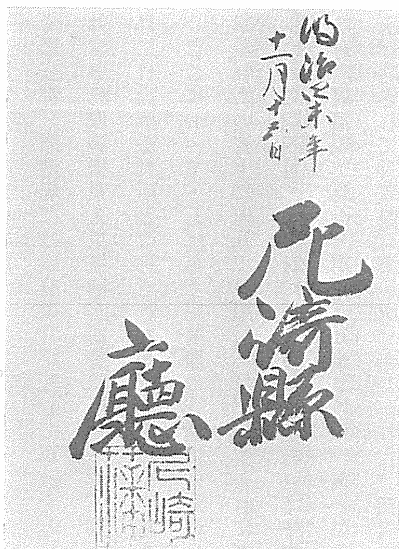 明治辛未年
十一月十六日
尼崎縣
廳
尼崎